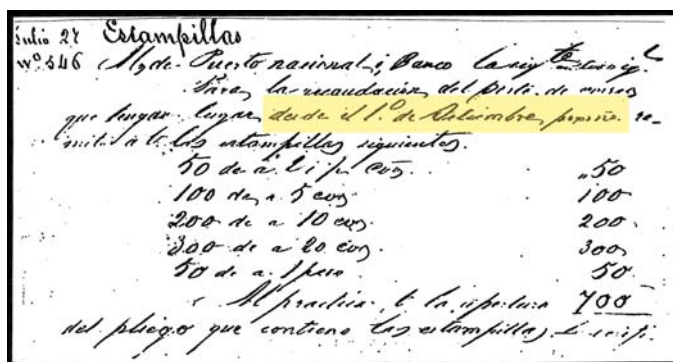 Julio 27 Estampillas
Nº 546 Al de Puerto nacional i Banco
Para la recaudacion del porte de
que tengan lugar desde el 1.º de Setiembre proximo re-
mito a U. las estampillas siguientes.
50 de a 2 i ½ cvs. 50
100 de a 5 cvs 100
200 de a 10 cvs. 200
300 de a 20 cvs. 300
50 de a 1 peso 50
Al practicar U. la apertura 700
del pliego que contiene las estampillas